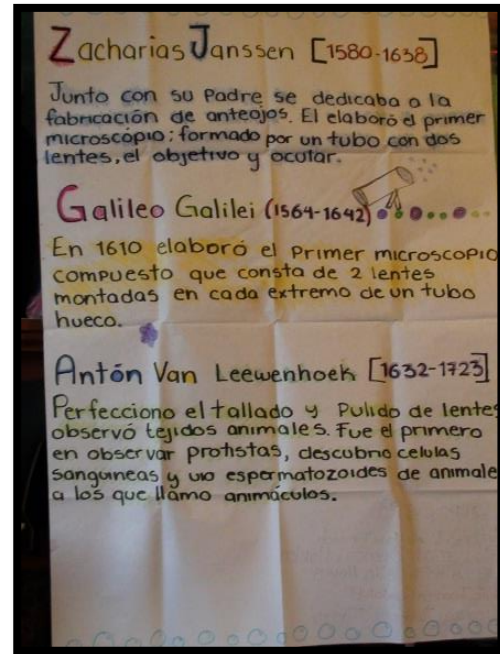 Zacharias Janssen [1580-1638]
Junto con su Padre se dedicaba a la
fabricación de anteojos. El elaboró el primer
microscopio; formado por un tubo con dos
lentes, el objetivo y ocular.
Galileo Galilei (1564-1642)
En 1610 elaboró el Primer microscopio
compuesto que consta de 2 lentes
montadas en cada extremo de un tubo
hueco.
Antón Van Leewenhoek [1632-1723]
Perfecciono el tallado y Pulido de lentes
observó tejidos animales. Fue el primero
en observar protistas, descubrio celulas
sanguineas y vio espermatozoides de animale
a los que llamo animáculos.